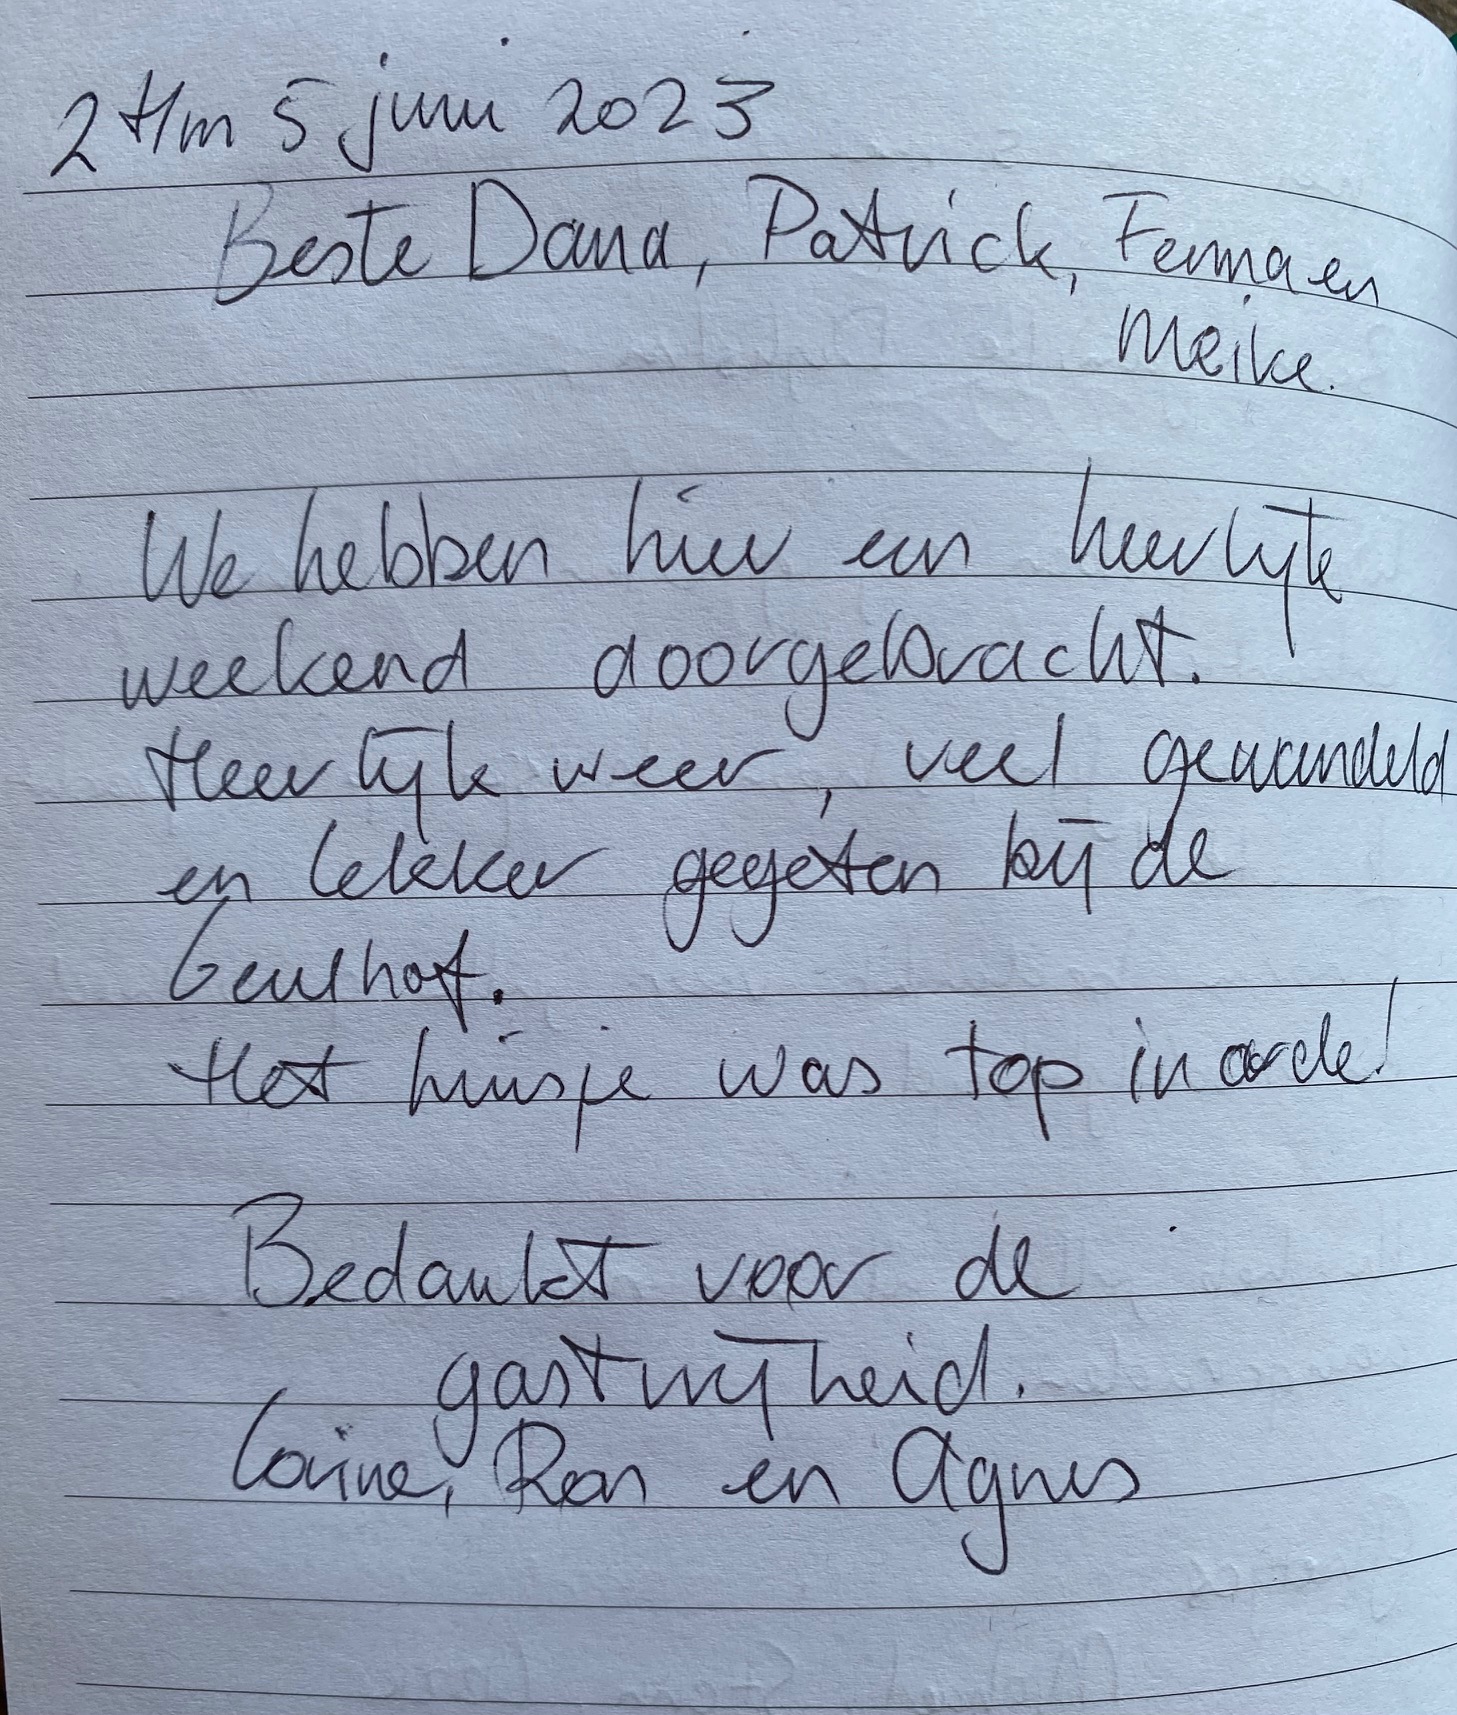 2 t/m 5 juni 2023
Beste Dana, Patrick, Fenna en
Meike.
We hebben hier een heerlijk
weekend doorgebracht.
Heerlijk weer, veel gewandeld
en lekker gegeten bij de
Geulhof.
Het huisje was top in orde!
Bedankt voor de
gastvrijheid.
Corine, Ron en Agnes